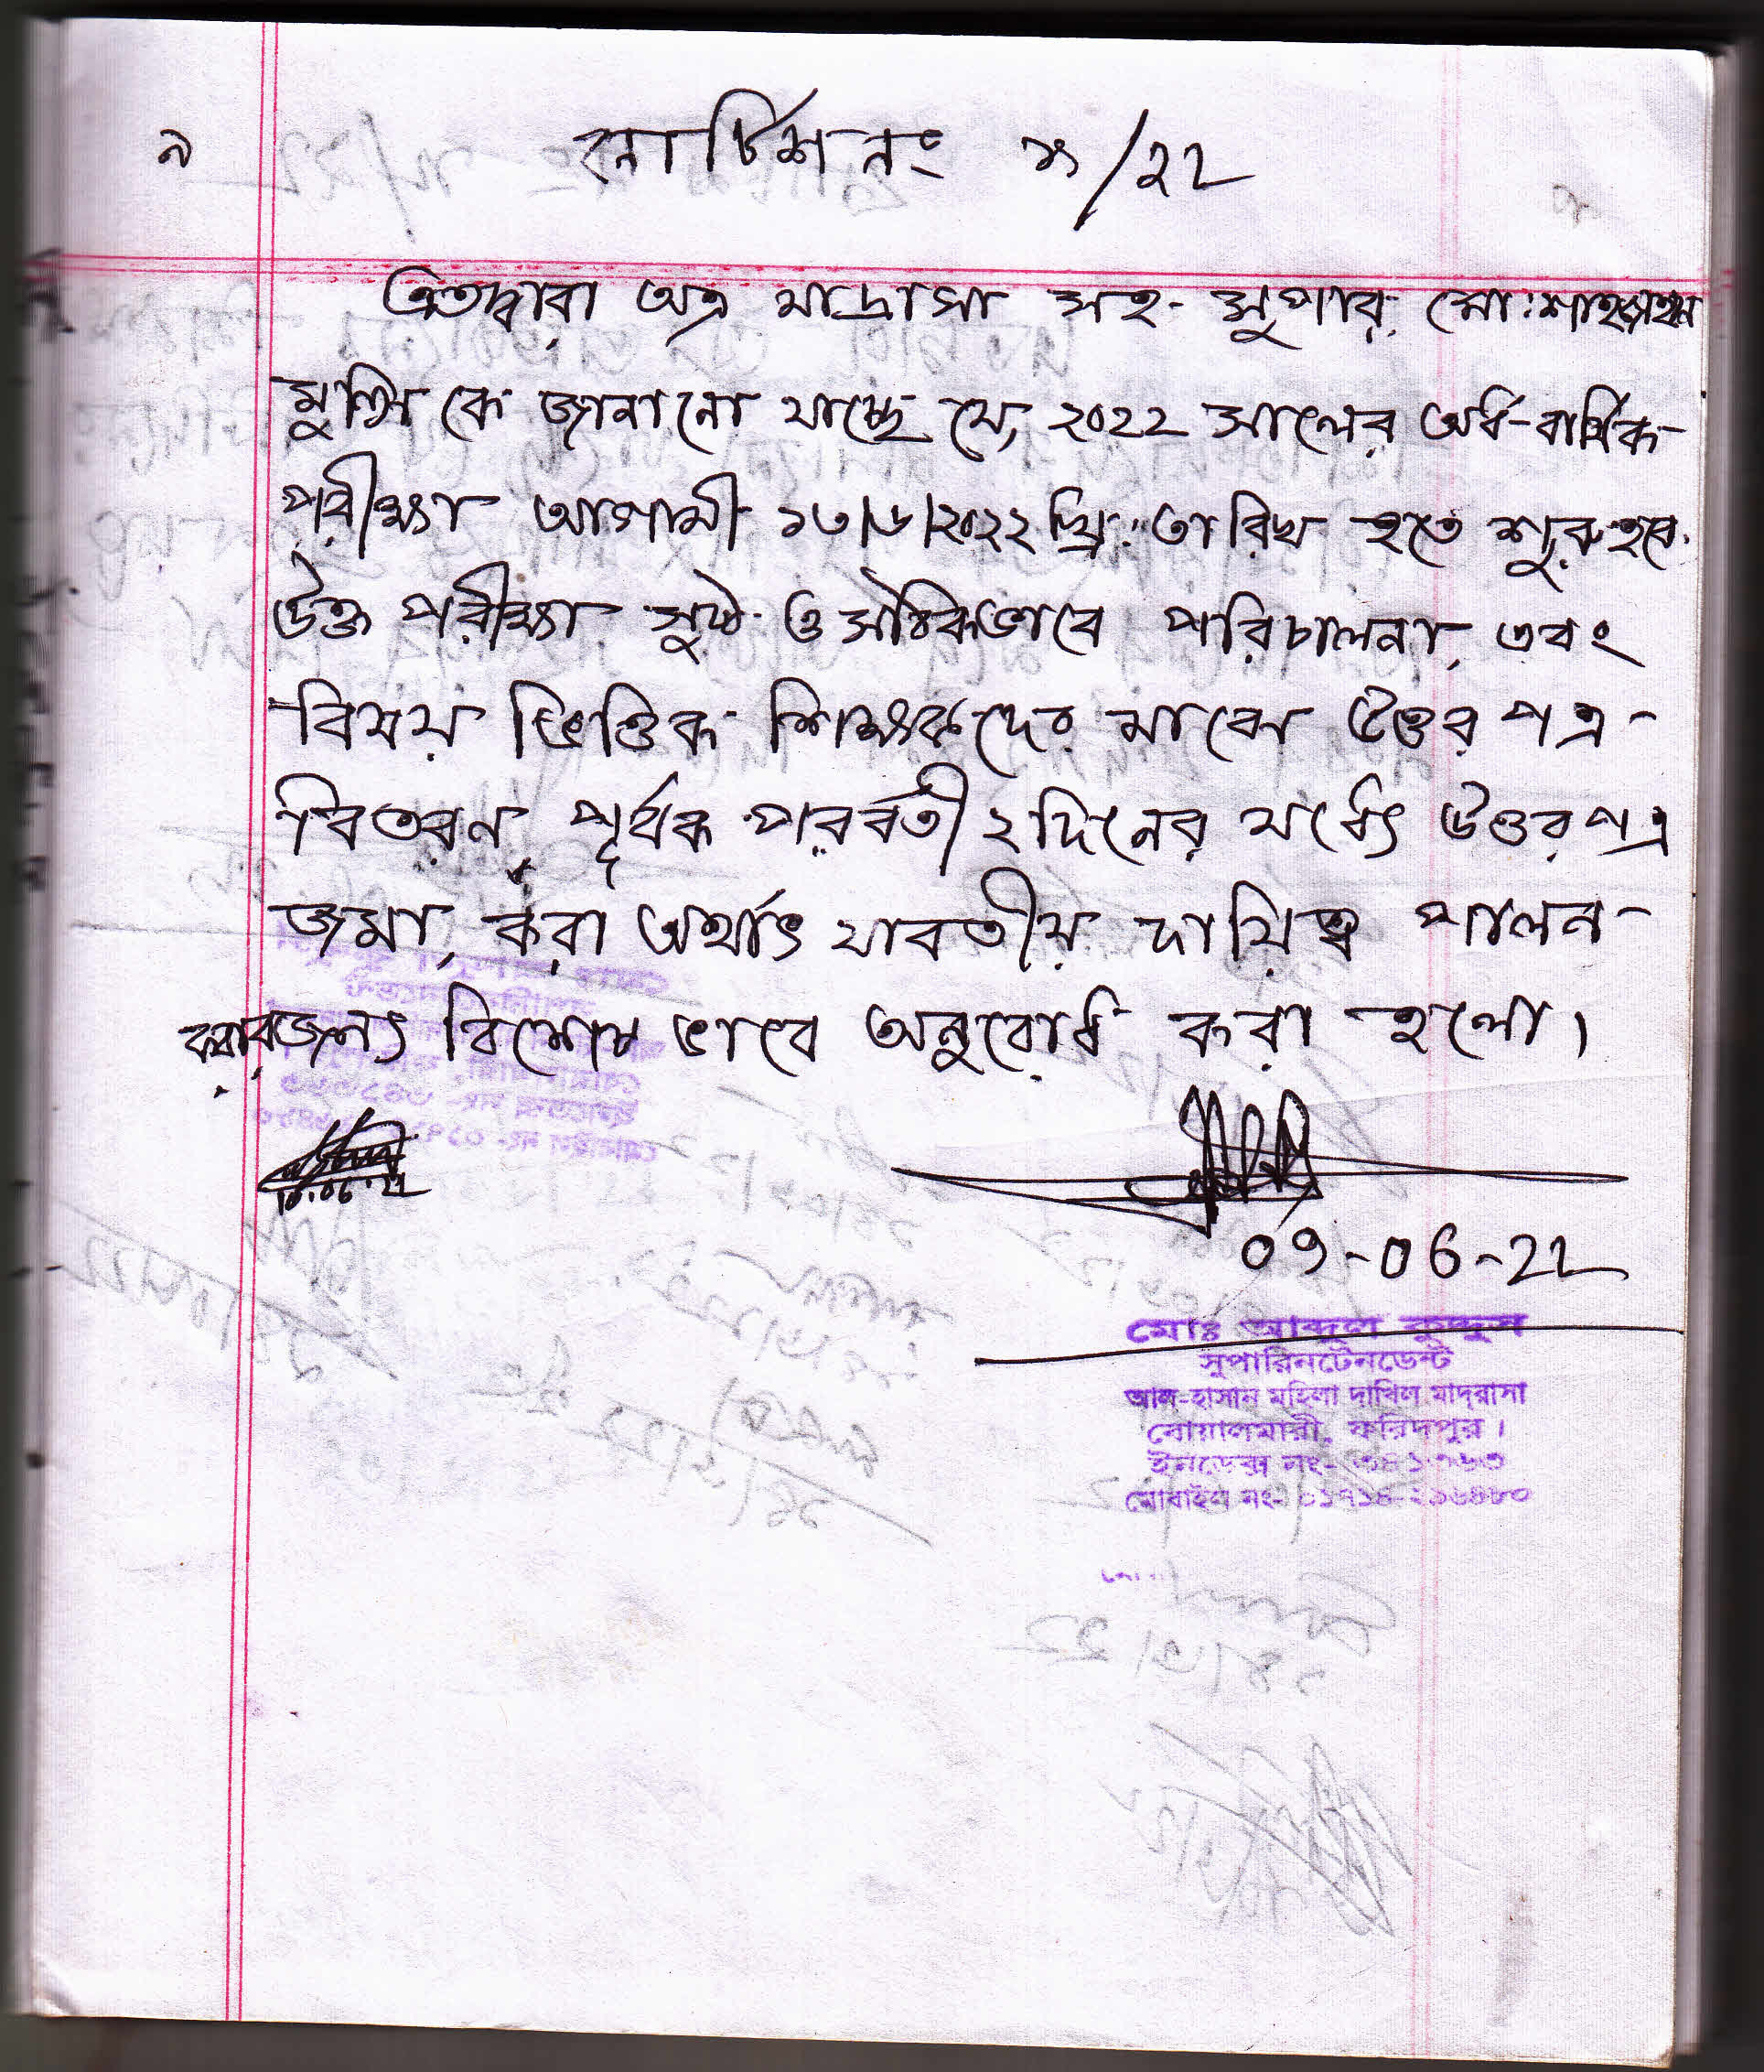 ৯
নোটিশ নং ১৯/২২
এতদ্বারা অত্র মাদ্রাসা সহ- সুপার মো: শাহজাহান
মুন্সি কে জানানো যাচ্ছে যে, ২০২২ সালের অর্ধ-বার্ষিক
পরীক্ষা আগামী ১৩/৬/২০২২ খ্রি: তারিখ হতে শুরু হবে।
উক্ত পরীক্ষা সুষ্ঠ ও সঠিকভাবে পরিচালনা, এবং
বিষয় ভিত্তিক শিক্ষকদের মাঝে উত্তর পত্র
বিতরন, পূর্বক পরবর্তী ২দিনের মধ্যে উত্তরপত্র
জমা, করা অর্থাৎ যাবতীয় দায়িত্ব পালন
করার জন্য বিশেষ ভাবে অনুরোধ করা হলো।
09-06-22
মোঃ আব্দুল কুদ্দুস
সুপারিনটেনডেন্ট
আল-হাসান মহিলা দাখিল মাদ্‌রাসা
বোয়ালমারী, ফরিদপুর।
ইনডেক্স নং-
মোবাইল নং-